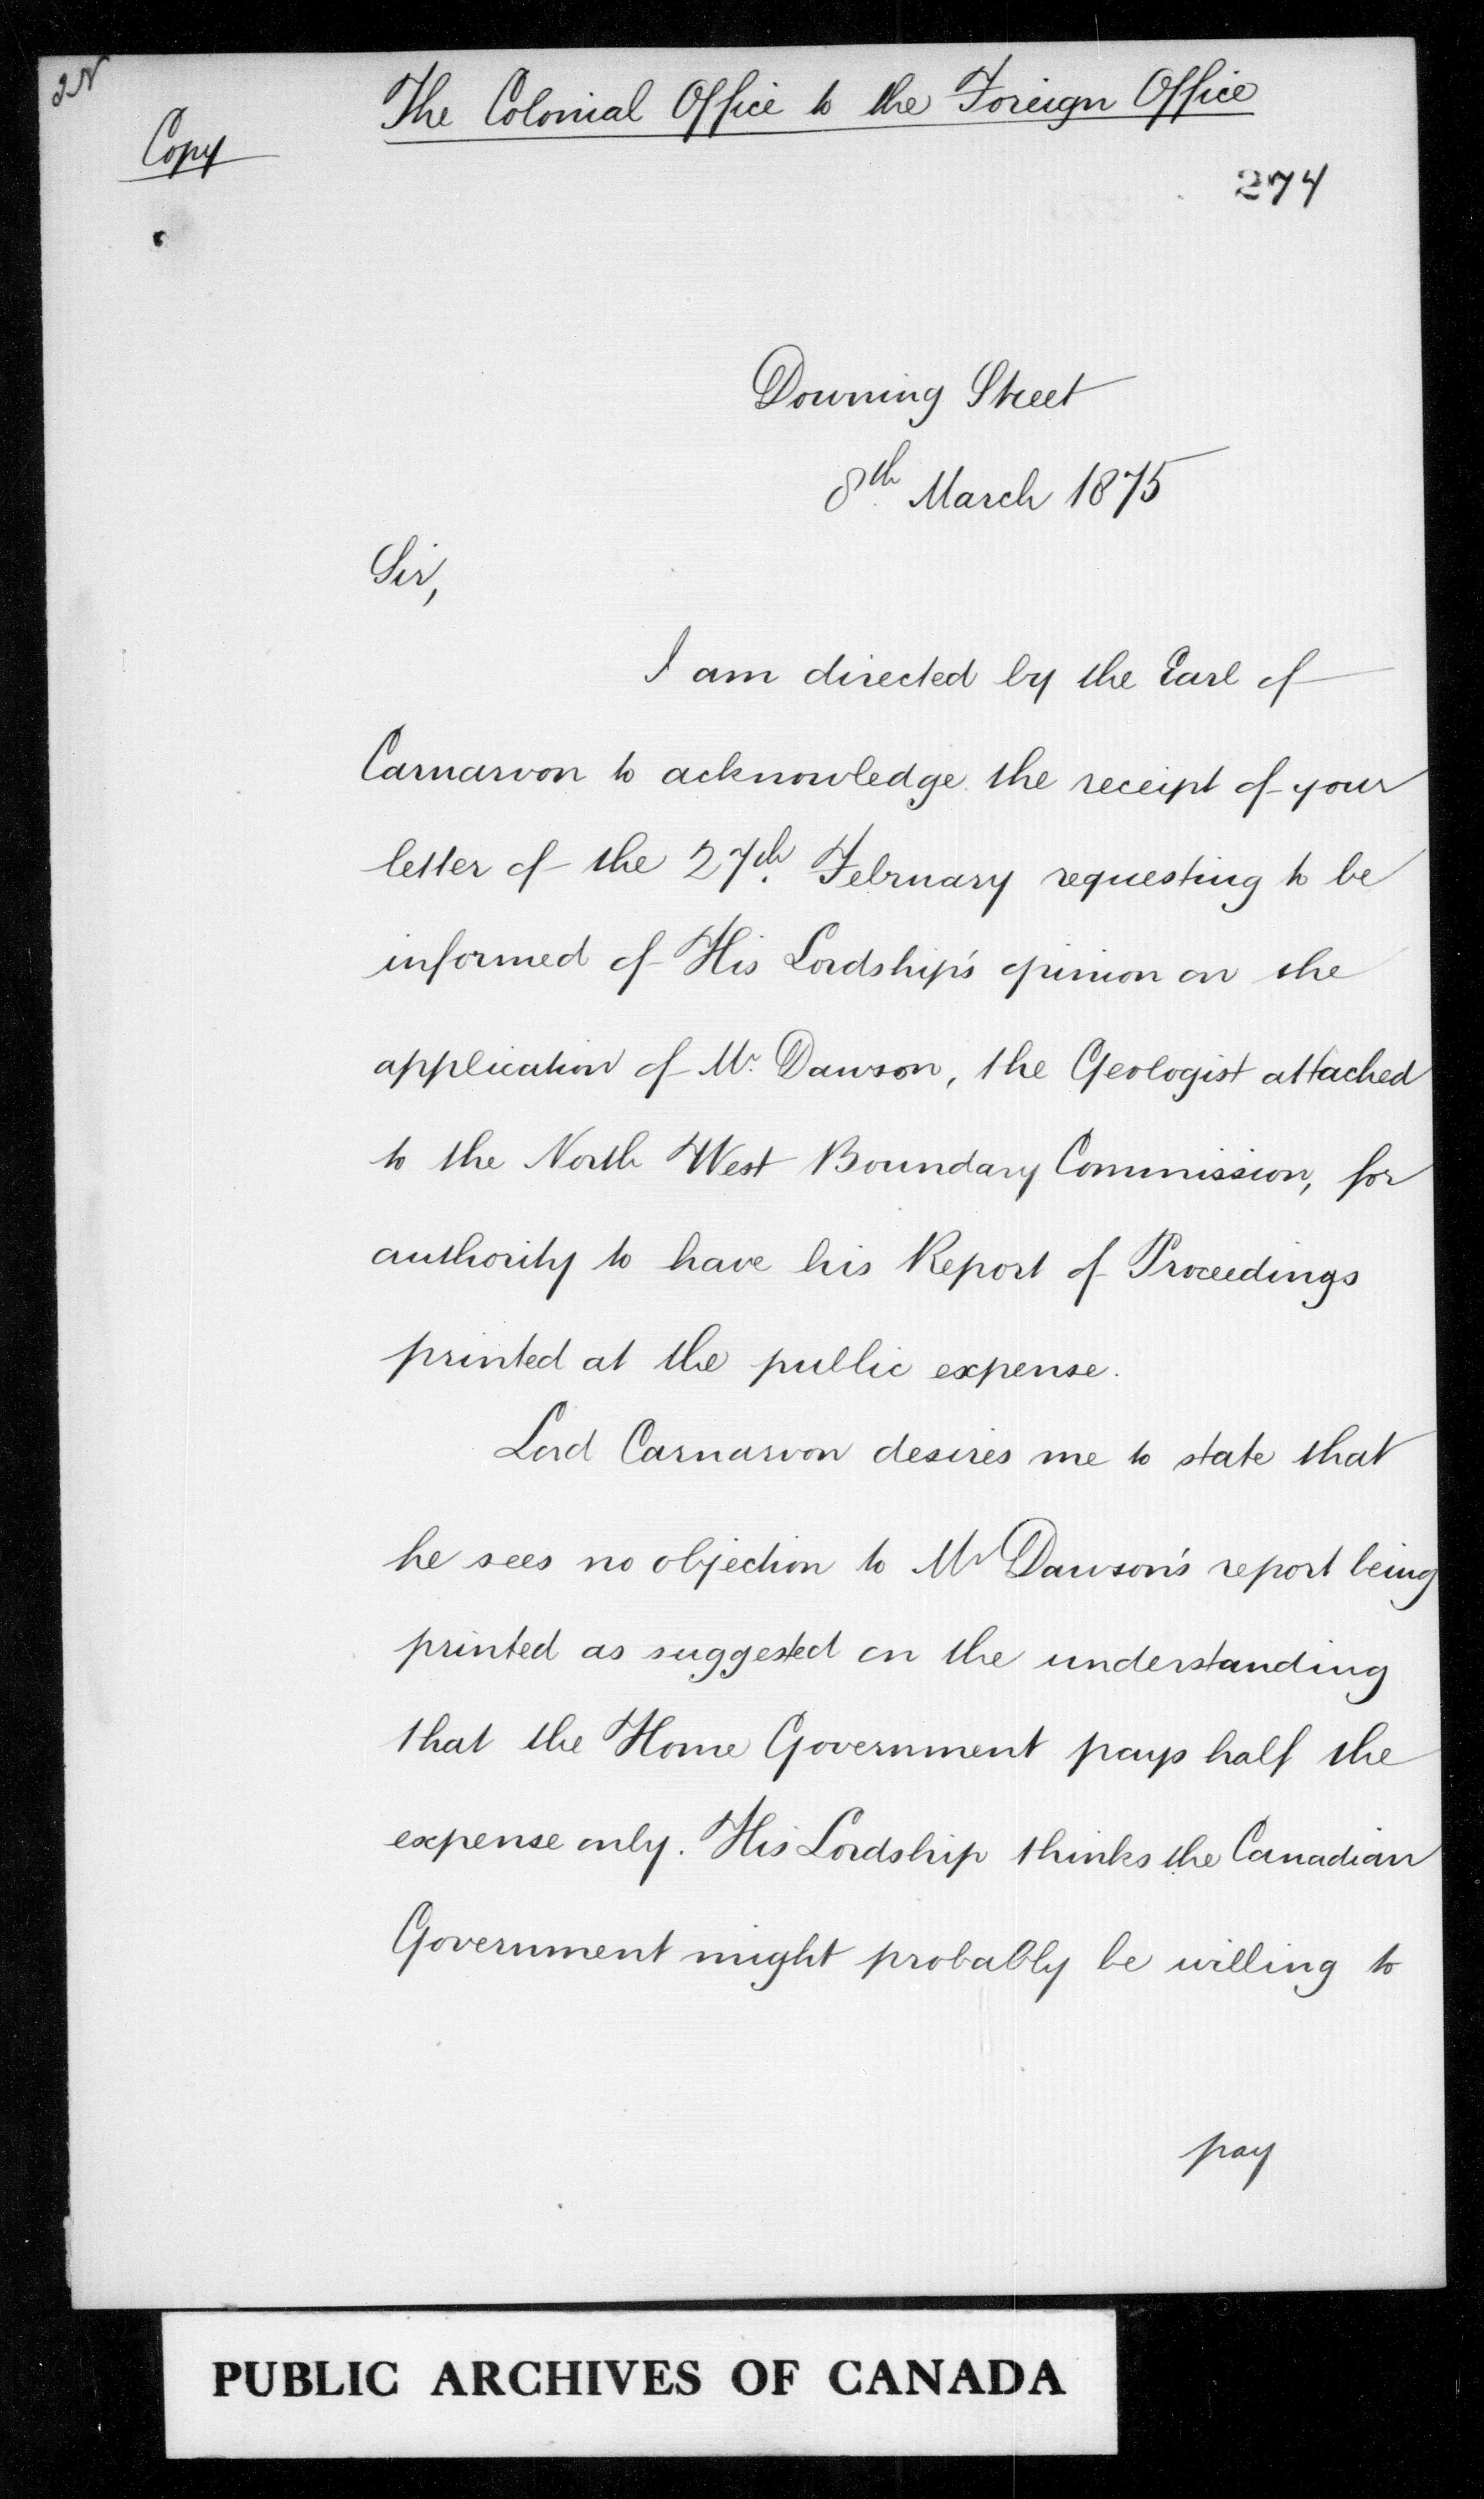 The Colonial Office to the Foreign Office
Copy
274
Downing Street
8th March 1875
Sir,
I am directed by the Earl of
Carnarvon to acknowledge the receipt of your
letter of the 27th February requesting to be
informed of His Lordship's opinion on the
application of Mr. Dawson, the Geologist attached
to the North West Boundary Commission, for
authority to have his Report of Proceedings
printed at the public expense.
Lord Carnarvon desires me to state that
he sees no objection to Mr Dawson's report being
printed as suggested on the understanding
that the Home Government pays half the
expense only. His Lordship thinks the Canadian
Government might probably be willing to
pay
PUBLIC ARCHIVES OF CANADA